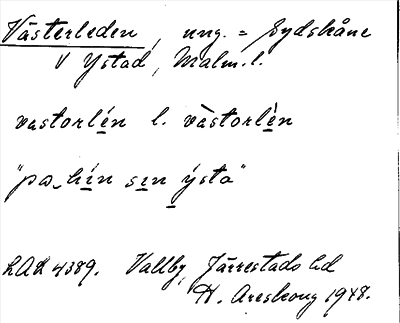 Västerleden, ung. = Sydskåne
V Ystad, Malm. l.
vastorlén l. vàstorlèn
"pa hín sın ýsta"
LAL 4389. Vallby, Järrestads hd
H. Areskoug 1948.